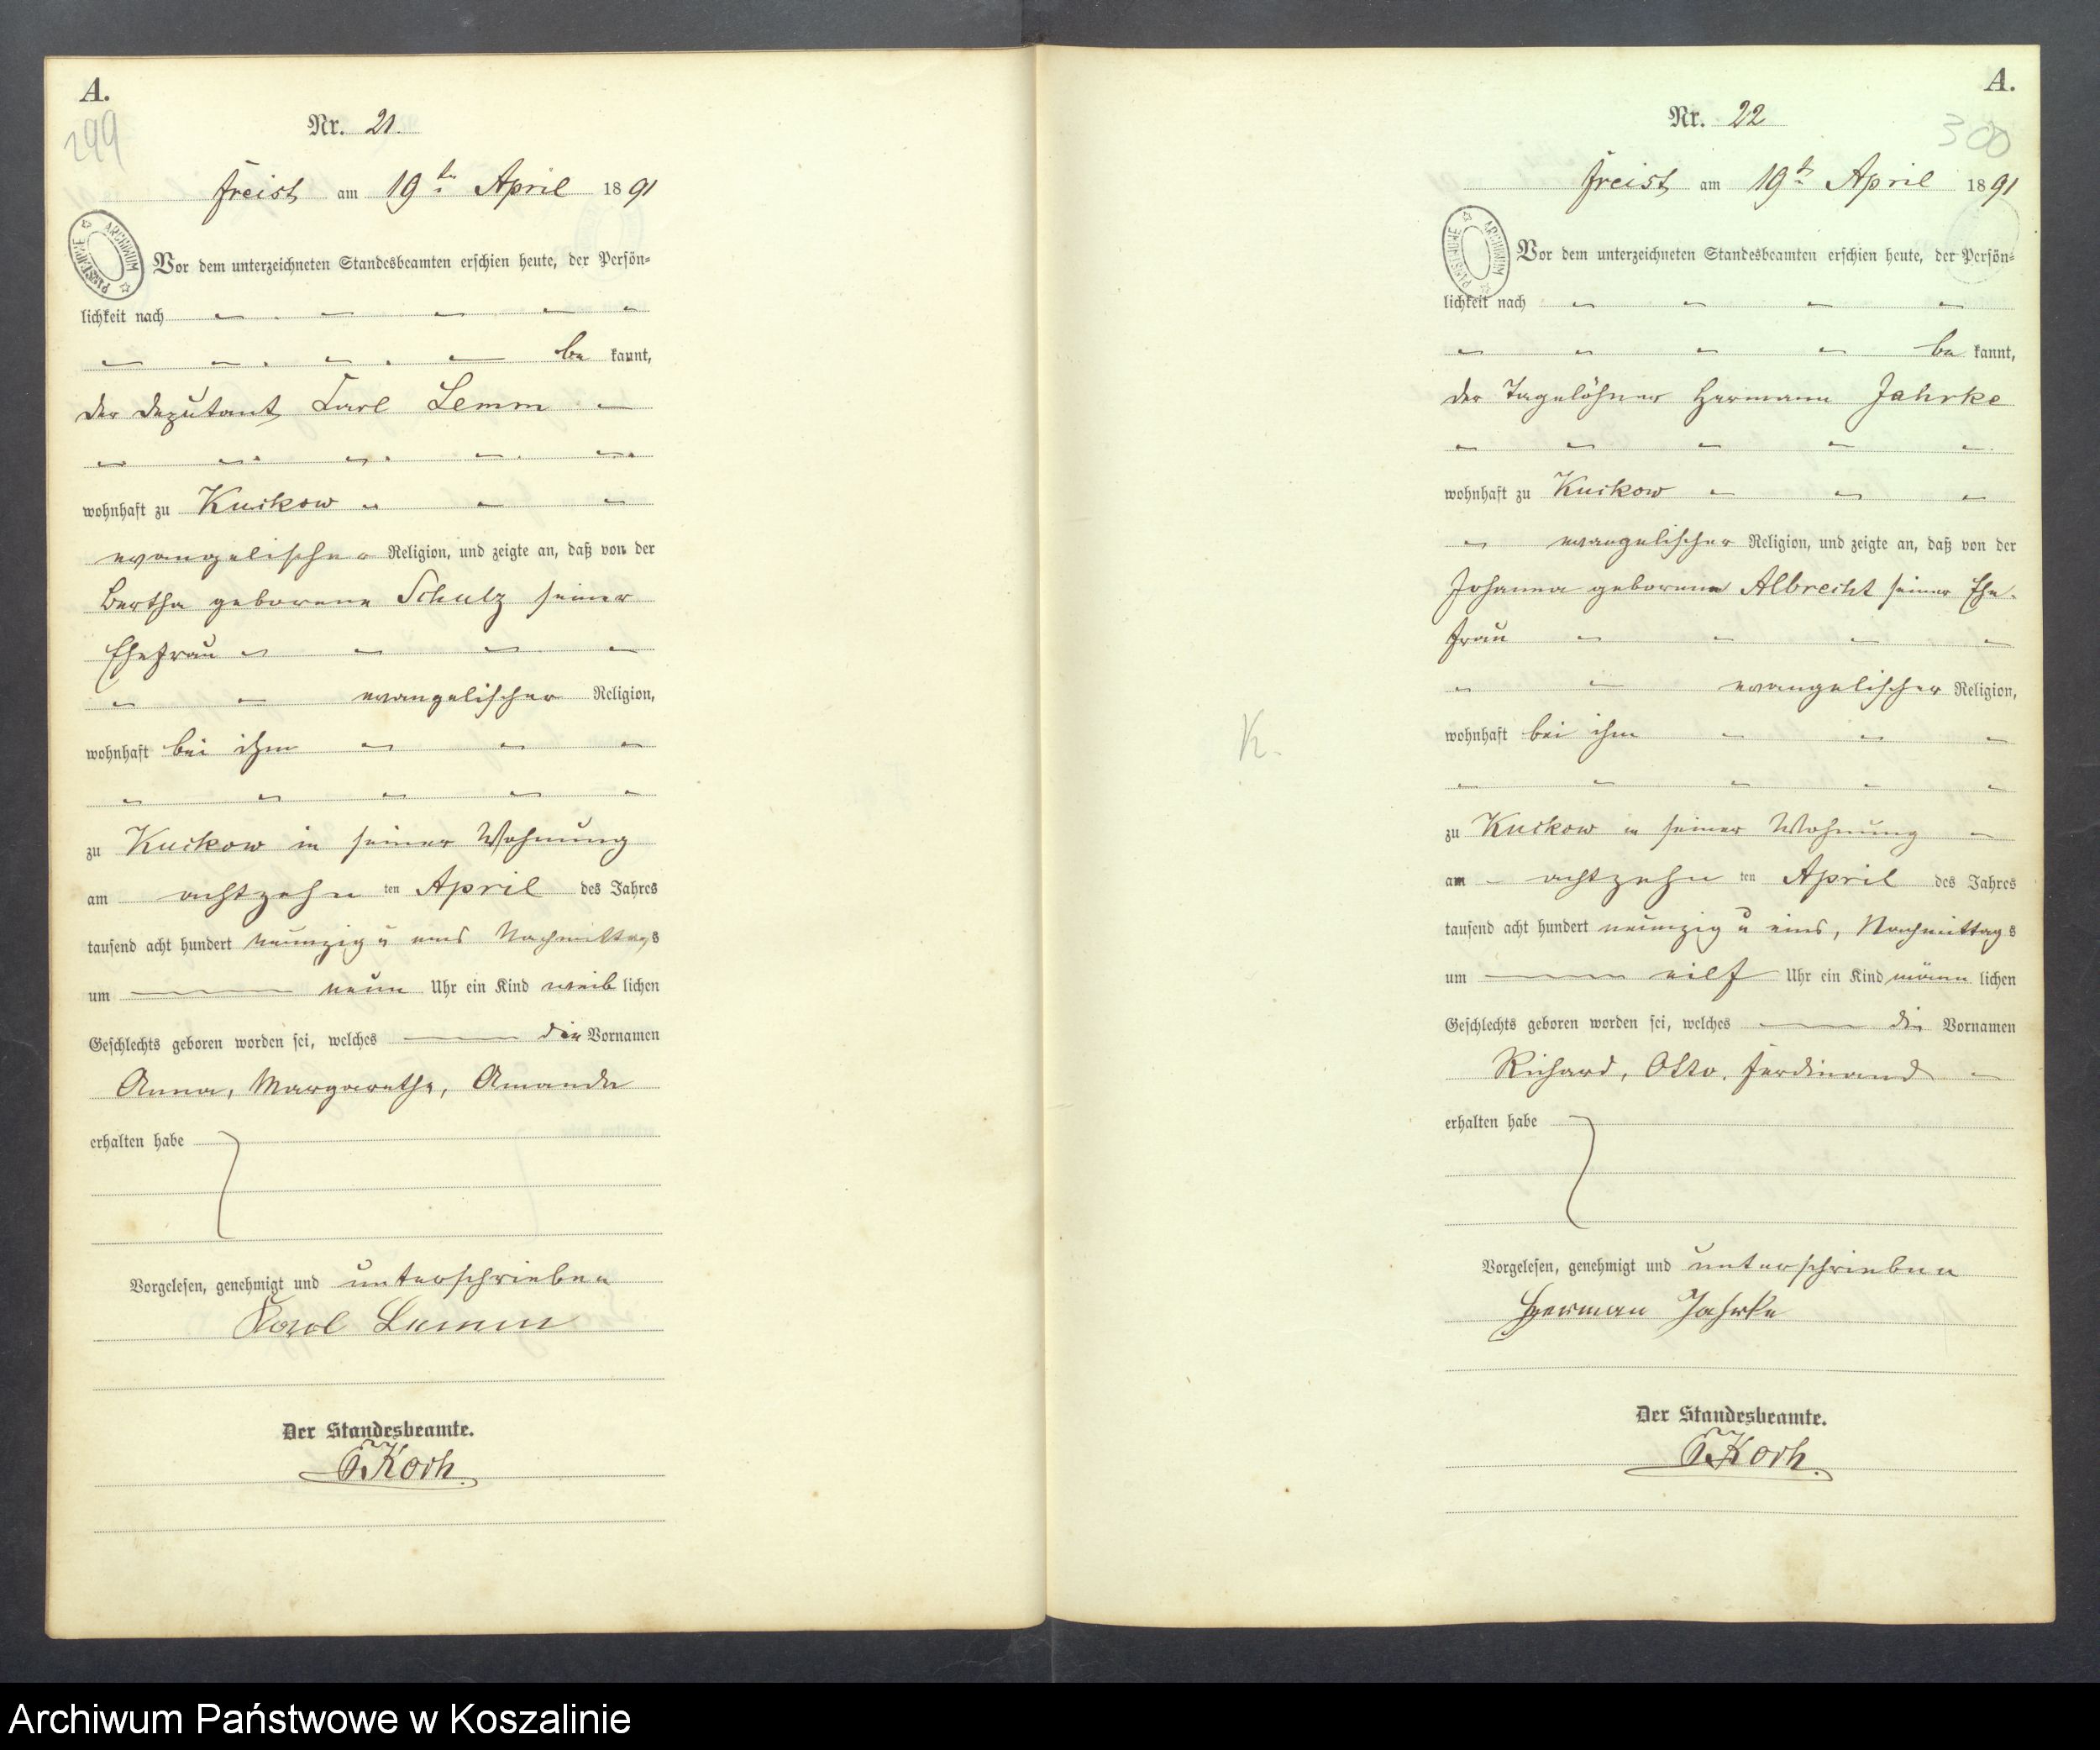 A.
299
Nr. 21.
Freist am 19ten April 1891
Vor dem unterzeichneten Standesbeamten erschien heute, der Persön-
lichkeit nach
be kannt,
der Deputant Carl Lemm
wohnhaft zu Kuckow
evangelischer Religion, und zeigte an, daß von der
Bertha geborene Schulz seiner
Ehefrau
evangelischer Religion,
wohnhaft bei ihm
zu Kuckow in seiner Wohnung
am achtzehn ten April des Jahres
tausend acht hundert neunzig u eins Nachmittags
um neun Uhr ein Kind weib lichen
Geschlechts geboren worden sei, welches die Vornamen
Anna, Margarethe, Amanda
erhalten habe
Vorgelesen, genehmigt und unterschrieben
Karl Lemm
Der Standesbeamte.
Koch.
ARCHIWUM PAŃSTWOWE
A.
300
Nr. 22
Freist am 19t. April 1891
Vor dem unterzeichneten Standesbeamten erschien heute, der Persön-
lichkeit nach
be kannt,
der Tagelöhner Hermann Jahrke
wohnhaft zu Kuckow
evangelischer Religion, und zeigte an, daß von der
Johanna geborene Albrecht seiner Ehe-
frau
evangelischer Religion,
wohnhaft bei ihm
zu Kuckow in seiner Wohnung
am achtzehn ten April des Jahres
tausend acht hundert neunzig u eins, Nachmittags
um eilf Uhr ein Kind männ lichen
Geschlechts geboren worden sei, welches die Vornamen
Richard, Otto, Ferdinand
erhalten habe
Vorgelesen, genehmigt und unterschrieben
Herman Jahrke
Der Standesbeamte.
Koch.
ARCHIWUM PAŃSTWOWE
K.
Archiwum Państwowe w Koszalinie